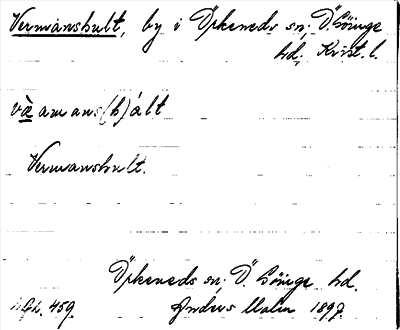 Vermanshult, by i Örkeneds sn; Ö. Göinge
hd; Krist. l.
vàamans(h)ált
Vermanshult.
Örkeneds sn; Ö. Göinge hd.
459. Andrus Malm 1897.